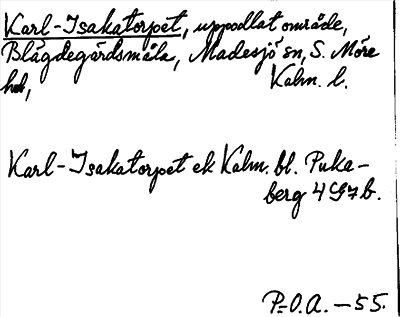 Karl-Isakatorpet, uppodlat område,
Blägdegårdsmåla, Madesjö sn, S. Möre
hd, Kalm. l.
Karl-Isakatorpet ek Kalm. bl. Puka-
berg 4G7b.
P-O.A. -55.